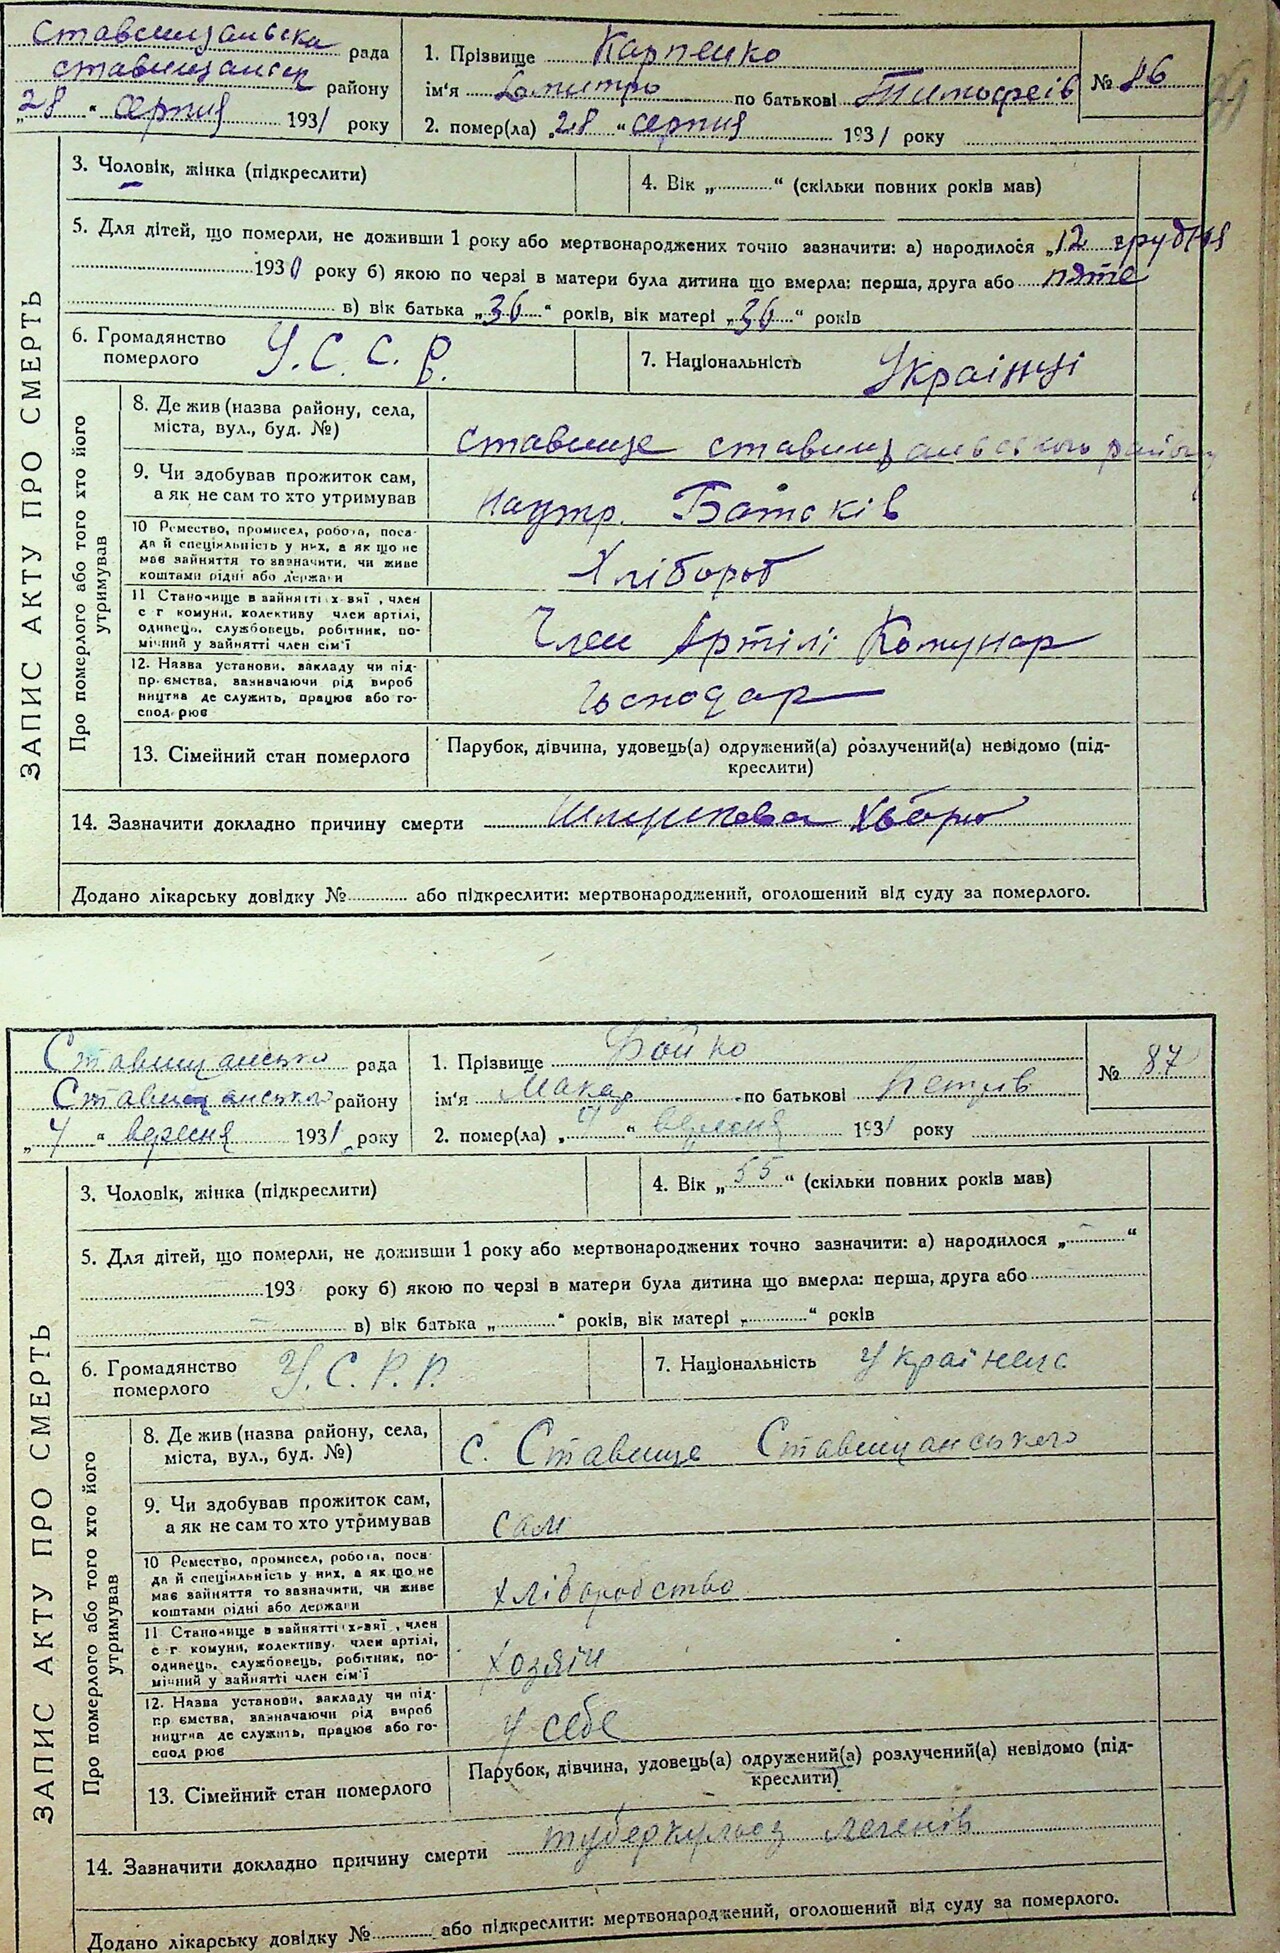 Ставищанська рада
ставищанськ району
„28 “ серпня 1931 року
1. Прізвище Карпенко
ім'я Дмитро по батькові Тимофеів
№ 86
2. помер(ла) „28 “ серпня 1931 року
3. Чоловік, жінка (підкреслити)
4. Вік „ “ (скільки повних років мав)
5. Для дітей, що померли, не доживши 1 року або мертвонароджених точно зазначити: а) народилося „12 грудня
1930 року б) якою по черзі в матери була дитина що вмерла: перша, друга або пяте
в) вік батька „36 “ років, вік матері „36 “ років
6. Громадянство
померлого
У. С. С. Р.
7. Національність Українці
ЗАПИС АКТУ ПРО СМЕРТЬ
Про померлого або того хто його
утримував
8. Де жив (назва району, села,
міста, вул., буд. №)
ставище ставищанського району
9. Чи здобував прожиток сам,
а як не сам то хто утримував
наутр. Батьків
10 Ремество, промисел, робота, поса-
да й спеціяльність у них, а як що не
має зайняття то зазначити, чи живе
коштами рідні або держави
Хлібороб
11 Становище в зайнятті х-вяї , член
с г комуни, колективу член артілі,
одинець, службовець, робітник, по-
мічний у зайнятті член сім'ї
Член Артілі Комунар
12. Назва установи, закладу чи під-
пр.ємства, вазначаючи рід вироб
ництва де служить, працює або го-
спод.рює
Господар
13. Сімейний стан померлого
Парубок, дівчина, удовець(а) одружений(а) розлучений(а) невідомо (під-
креслити)
14. Зазначити докладно причину смерти Шлункова
Додано лікарську довідку № або підкреслити: мертвонароджений, оголошений від суду за померлого.
Ставищансько рада
Ставищансько району
„4 “ вересня 1931 року
1. Прізвище Бойко
ім'я Макар по батькові Петрів
№ 87
2. помер(ла) „4 “ вересня 1931 року
3. Чоловік, жінка (підкреслити)
4. Вік „55 “ (скільки повних років мав)
5. Для дітей, що померли, не доживши 1 року або мертвонароджених точно зазначити: а) народилося „ “
193 року б) якою по черзі в матери була дитина що вмерла: перша, друга або
в) вік батька „ “ років, вік матері „ “ років
6. Громадянство
померлого
У. С. Р. Р.
7. Національність Українець
ЗАПИС АКТУ ПРО СМЕРТЬ
Про померлого або того хто його
утримував
8. Де жив (назва району, села,
міста, вул., буд. №)
с. Ставище Ставищанського
9. Чи здобував прожиток сам,
а як не сам то хто утримував
сам
10 Ремество, промисел, робота, поса-
да й спеціяльність у них, а як що не
має зайняття то зазначити, чи живе
коштами рідні або держави
хліборобство
11 Становище в зайнятті х-вяї , член
с г комуни, колективу. член артілі,
одинець, службовець, робітник, по-
мічний у зайнятті член сім'ї
хозяїн
12. Назва установи, закладу чи під-
пр ємства, вазначаючи рід вироб
ництва де служить, працює або го-
спод рює
у себе
13. Сімейний стан померлого
Парубок, дівчина, удовець(а) одружений(а) розлучений(а) невідомо (під-
креслити)
14. Зазначити докладно причину смерти туберкульоз легенів
Додано лікарську довідку № або підкреслити: мертвонароджений, оголошений від суду за померлого.